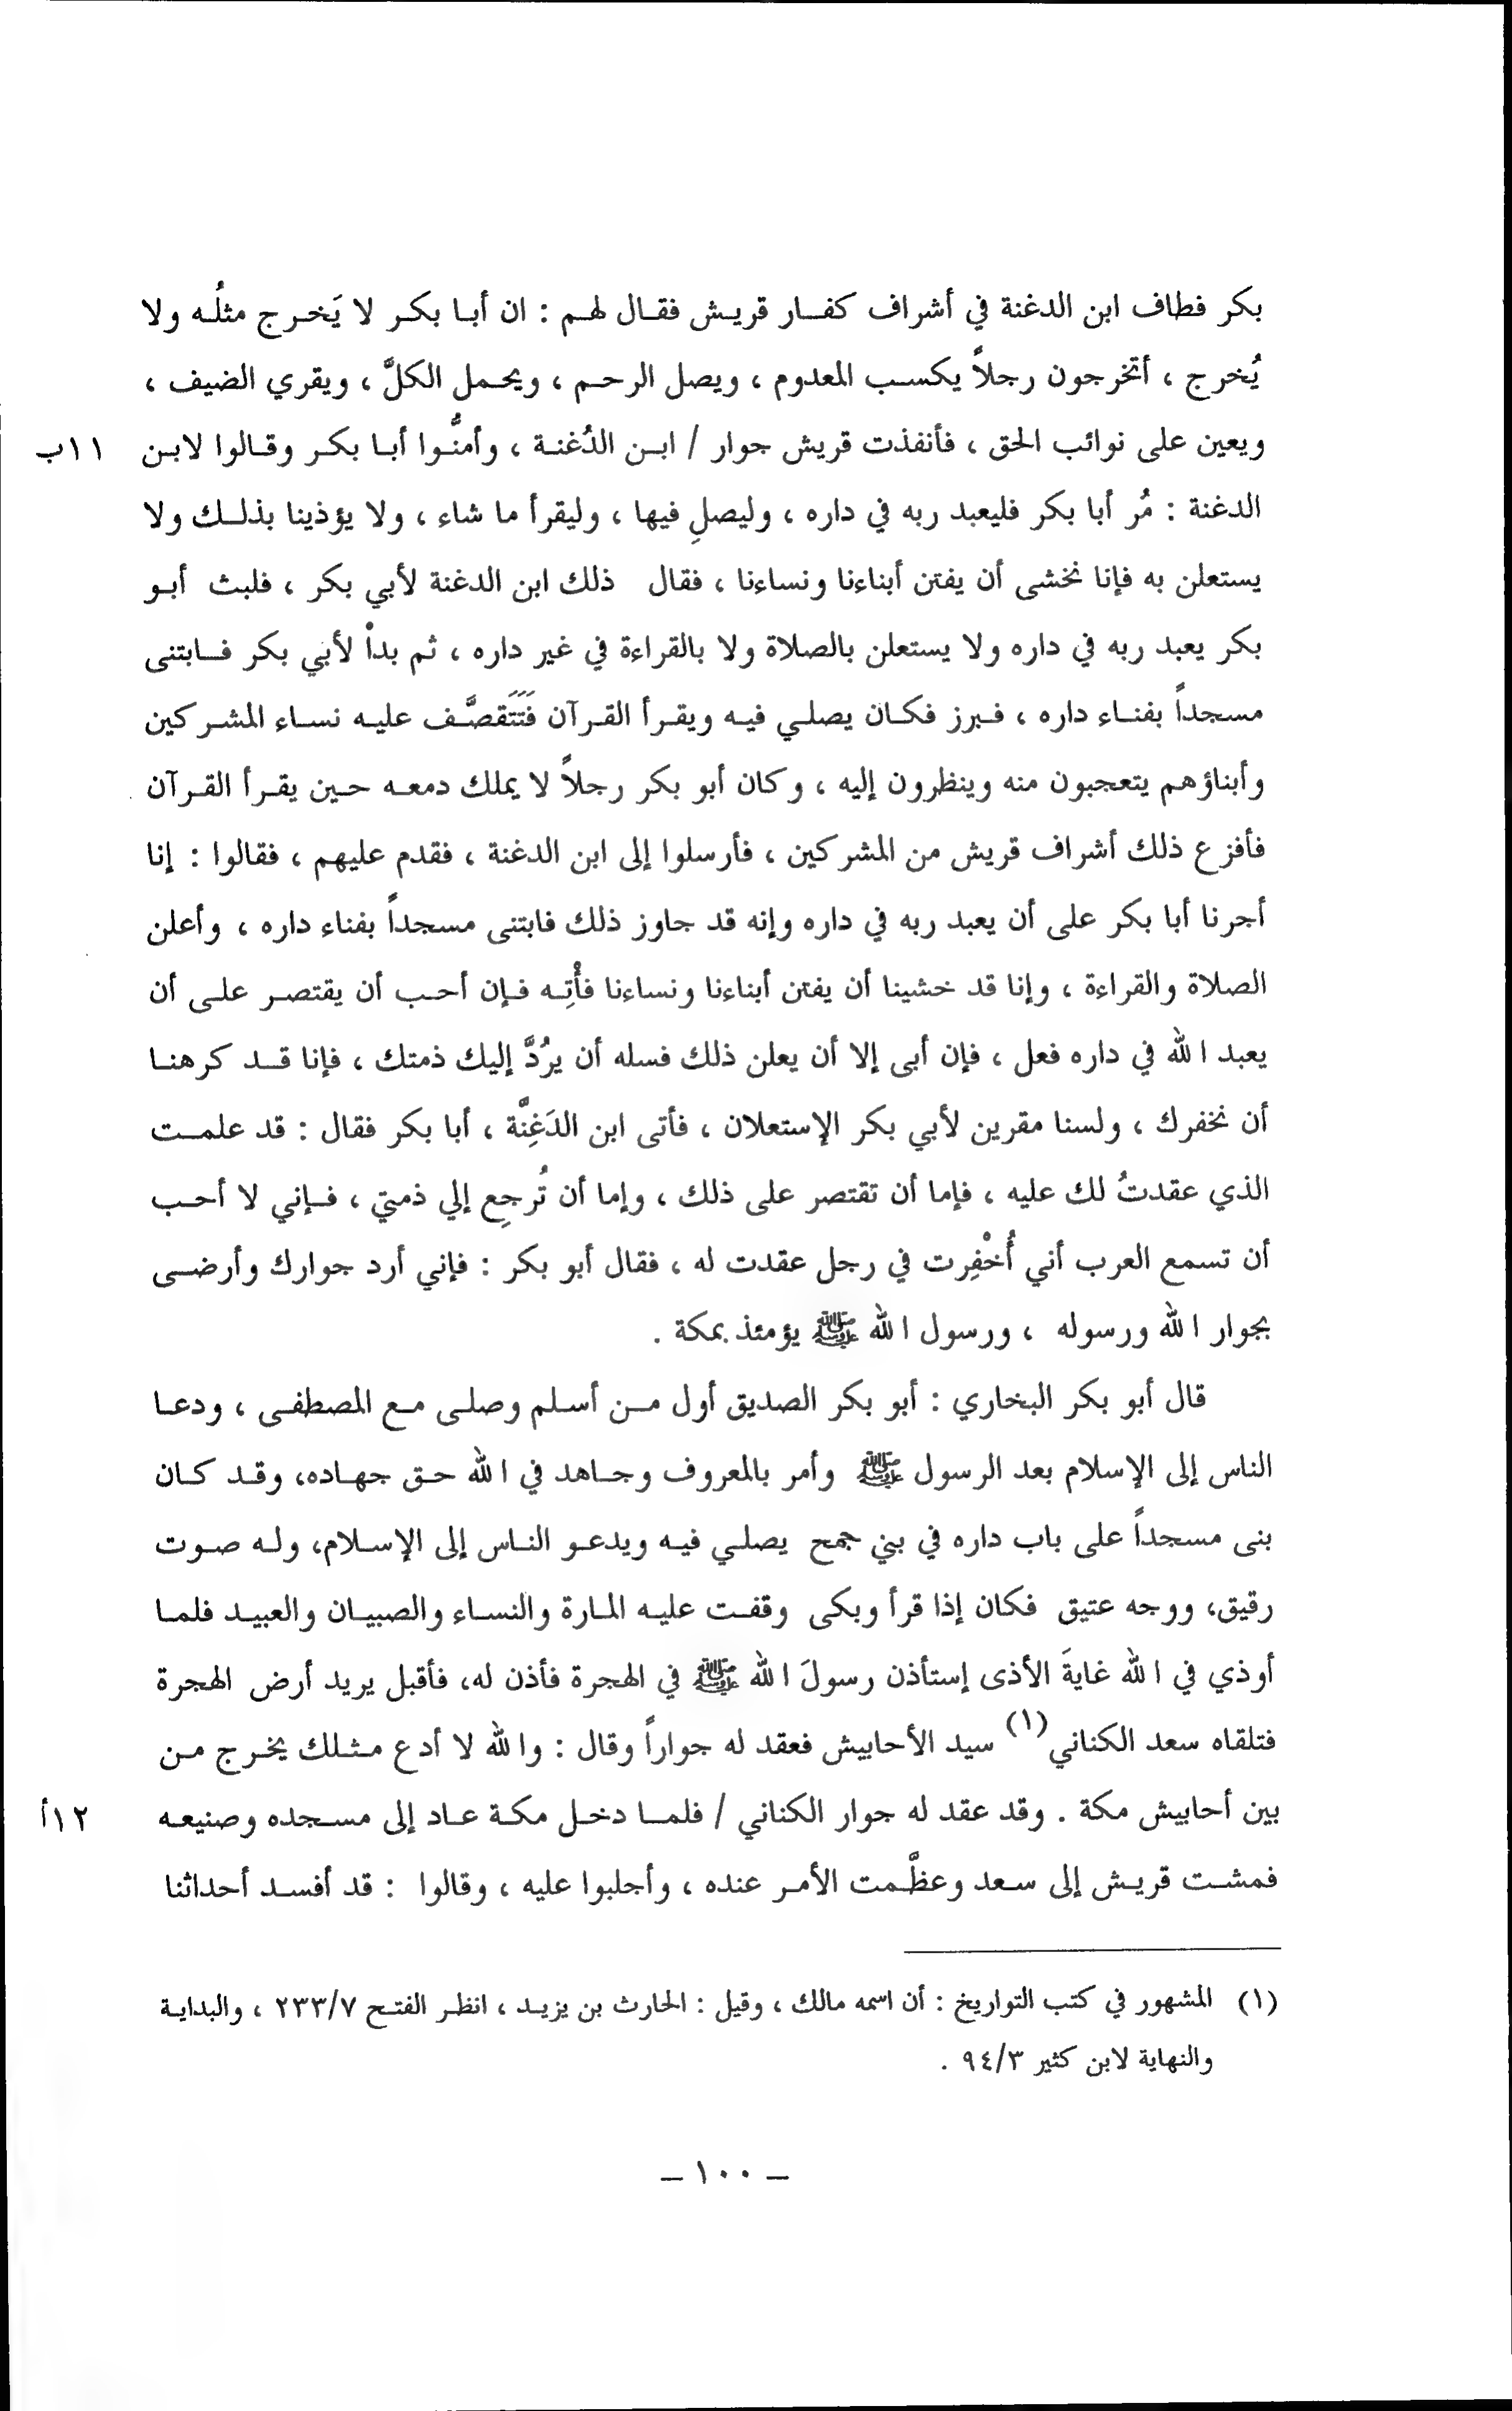 بكر فطاف ابن الدغنة في أشراف كفار قريش فقال لهم : ان أبا بكر لا يَخرج مثلُه ولا
يُخرج ، أتخرجون رجلاً يكسب المعدوم ، ويصل الرحم ، ويحمل الكلَّ ، ويقري الضيف ،
ويعين على نوائب الحق ، فأنفذت قريش جوار / ابن الدُغنة ، وأمنُّوا أبا بكر وقالوا لابن ١١ب
الدغنة : مُر أبا بكر فليعبد ربه في داره ، وليصلِ فيها ، وليقرأ ما شاء ، ولا يؤذينا بذلك ولا
يستعلن به فإنا نخشى أن يفتن أبناءنا ونساءنا ، فقال ذلك ابن الدغنة لأبي بكر ، فلبث أبو
بكر يعبد ربه في داره ولا يستعلن بالصلاة ولا بالقراءة في غير داره ، ثم بداْ لأبي بكر فابتنى
مسجداً بفناء داره ، فبرز فكان يصلي فيه ويقرأ القرآن فَتَتَقصَّف عليه نساء المشركين
وأبناؤهم يتعجبون منه وينظرون إليه ، وكان أبو بكر رجلاً لا يملك دمعه حين يقرأ القرآن
فأفزع ذلك أشراف قريش من المشركين ، فأرسلوا إلى ابن الدغنة ، فقدم عليهم ، فقالوا : إنا
أجرنا أبا بكر على أن يعبد ربه في داره وإنه قد جاوز ذلك فابتنى مسجداً بفناء داره ، وأعلن
الصلاة والقراءة ، وإنا قد خشينا أن يفتن أبناءنا ونساءنا فأْتِه فإن أحب أن يقتصر على أن
يعبد الله في داره فعل ، فإن أبى إلا أن يعلن ذلك فسله أن يرُدَّ إليك ذمتك ، فإنا قد كرهنا
أن نخفرك ، ولسنا مقرين لأبي بكر الإستعلان ، فأتى ابن الدَغِنَّة ، أبا بكر فقال : قد علمت
الذي عقدتُ لك عليه ، فإما أن تقتصر على ذلك ، وإما أن تُرجِع إلي ذمتي ، فإني لا أحب
أن تسمع العرب أني أُخْفِرت في رجل عقدت له ، فقال أبو بكر : فإني أرد جوارك وأرضى
بجوار الله ورسوله ، ورسول الله ﷺ يؤمئذ بمكة .
قال أبو بكر البخاري : أبو بكر الصديق أول من أسلم وصلى مع المصطفى ، ودعا
الناس إلى الإسلام بعد الرسول ﷺ وأمر بالمعروف وجاهد في الله حق جهاده، وقد كان
بنى مسجداً على باب داره في بني جمح يصلي فيه ويدعو الناس إلى الإسلام، وله صوت
رقيق، ووجه عتيق فكان إذا قرأ وبكى وقفت عليه المارة والنساء والصبيان والعبيد فلما
أوذي في الله غايةَ الأذى إستأذن رسولَ الله ﷺ في الهجرة فأذن له، فأقبل يريد أرض الهجرة
فتلقاه سعد الكناني(١) سيد الأحابيش فعقد له جواراً وقال : والله لا أدع مثلك يخرج من
بين أحابيش مكة . وقد عقد له جوار الكناني / فلما دخل مكة عاد إلى مسجده وصنيعه ١٢أ
فمشت قريش إلى سعد وعظَّمت الأمر عنده ، وأجلبوا عليه ، وقالوا : قد أفسد أحداثنا
(١) المشهور في كتب التواريخ : أن اسمه مالك ، وقيل : الحارث بن يزيد ، انظر الفتح ٢٣٣/٧ ، والبداية
والنهاية لابن كثير ٩٤/٣ .
– ١٠٠ –